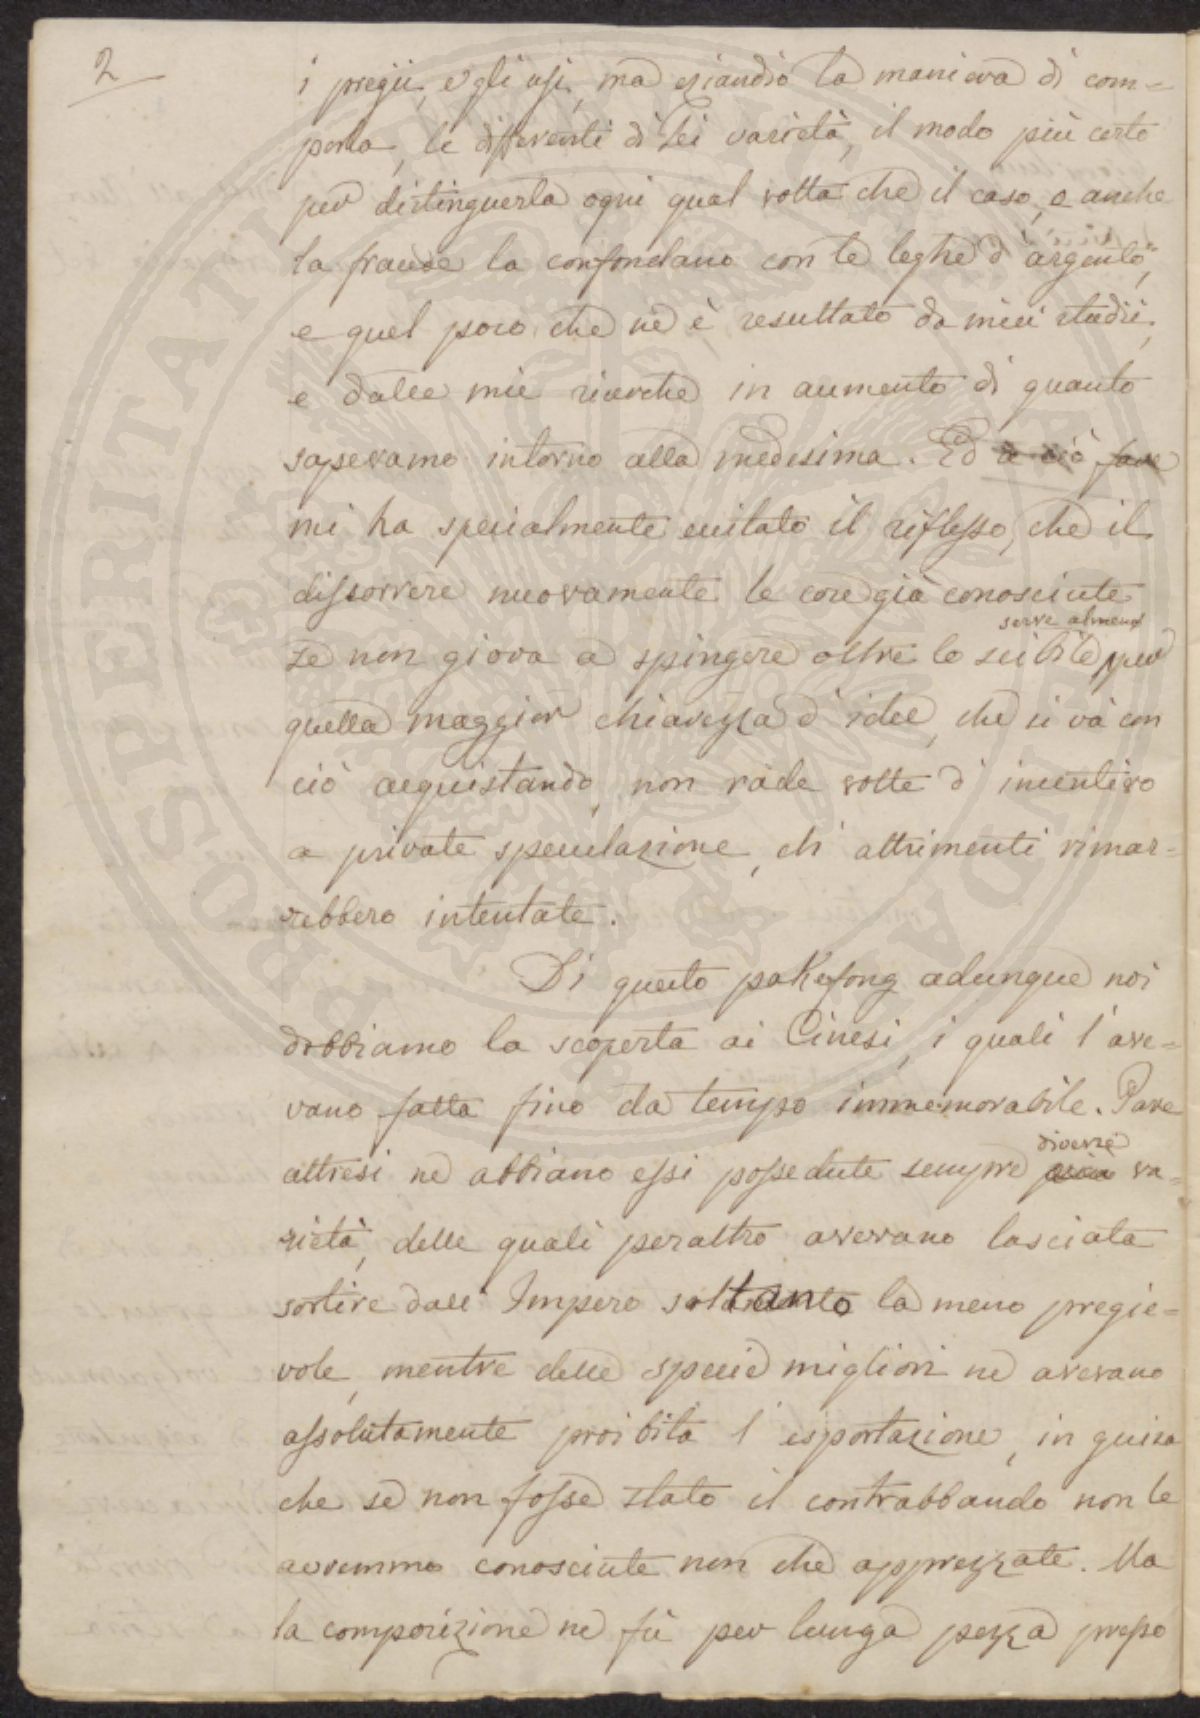 2
i pregii, e gli usi, ma eziandio la maniera di com=
porla, le differenti di Lei varietà, il modo più certo
per distinguerla ogni qual volta che il caso, o anche
la fraude la confondano con le leghe d'argento,
e quel poco che ne è resultato da miei studii,
e dalle mie ricerche in aumento di quanto
sapevamo intorno alla medesima. Ed a ciò fare
mi ha specialmente eccitato il riflesso, che il
discorrere nuovamente le cose già conosciute
serve almeno
se non giova a spingere oltre lo scibile per
quella maggior chiarezza d'idee, che si va con
ciò acquistando, non rade volte d'incentivo
a private speculazione, ch'altrimenti rimar=
rebbero intentate.
Di questo pakfong adunque noi
dobbiamo la scoperta ai Cinesi, i quali l'ave=
vano fatta fino da tempo immemorabile. Pare
diverse
altresi ne abbiano essi possedute sempre va=
rietà, delle quali peraltro avevano lasciata
sortire dall'Impero soltanto la meno pregie=
vole, mentre delle specie migliori ne avevano
assolutamente proibita l'esportazione, in guisa
che se non fosse stato il contrabbando non le
avremmo conosciute non che apprezzate. Ma
la composizione ne fù per lunga pezza presso